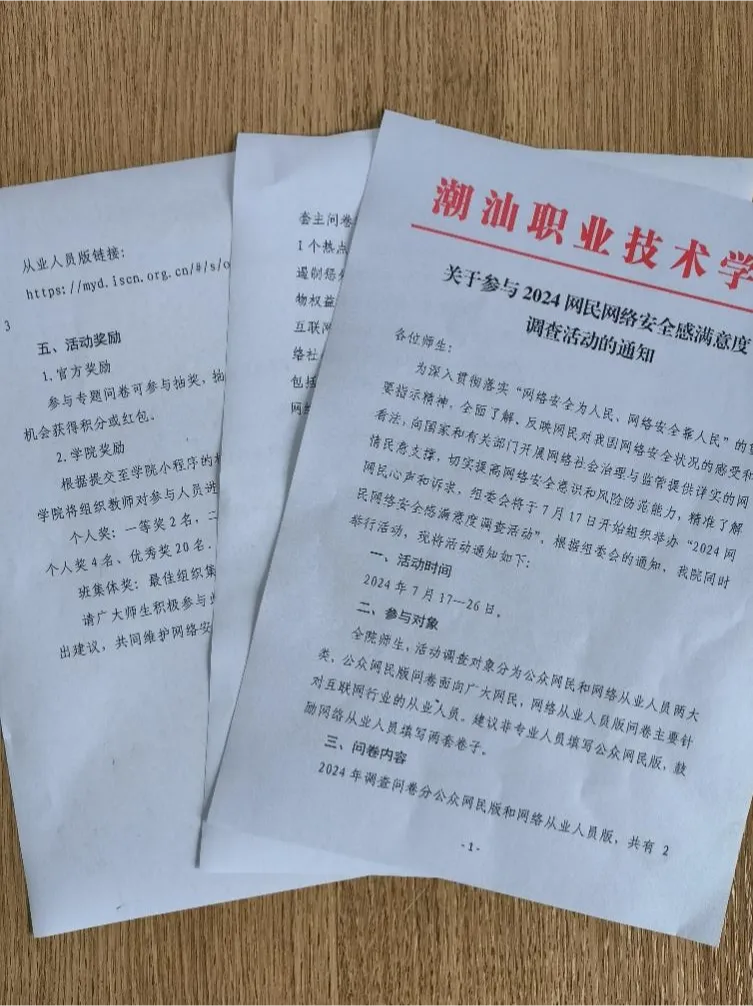 潮汕职业技术学
关于参与2024网民网络安全感满意度
调查活动的通知
各位师生：
为深入贯彻落实“网络安全为人民、网络安全靠人民”的重
要指示精神，全面了解、反映网民对我国网络安全状况的感受和
看法，向国家和有关部门开展网络社会治理与监管提供详实的网
情民意支撑，切实提高网络安全意识和风险防范能力，精准了解
网民心声和诉求，组委会将于7月17日开始组织举办“2024网
民网络安全感满意度调查活动”，根据组委会的通知，我院同时
举行活动，现将活动通知如下：
一、活动时间
2024年7月17—26日。
二、参与对象
全院师生，活动调查对象分为公众网民和网络从业人员两大
类，公众网民版问卷面向广大网民，网络从业人员版问卷主要针
对互联网行业的从业人员。建议非专业人员填写公众网民版，鼓
励网络从业人员填写两套卷子。
三、问卷内容
2024年调查问卷分公众网民版和网络从业人员版，共有 2
-1-
套主问卷
1个热点
遏制惩
物权益
互联网
络社
包括
网络
从业人员版链接：
https://myd.iscn.org.cn/#/s/o
3
五、活动奖励
1.官方奖励
参与专题问卷可参与抽奖，抽
机会获得积分或红包。
2.学院奖励
根据提交至学院小程序的
学院将组织教师对参与人员进
个人奖：一等奖2名，二
个人奖4名、优秀奖20名.
班集体奖：最佳组织集
请广大师生积极参与
出建议，共同维护网络安